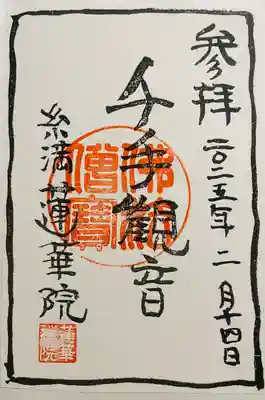 参拝 二〇二五年 二月十四日
千手觀音
佛法僧寶
糸満蓮華院
蓮華院